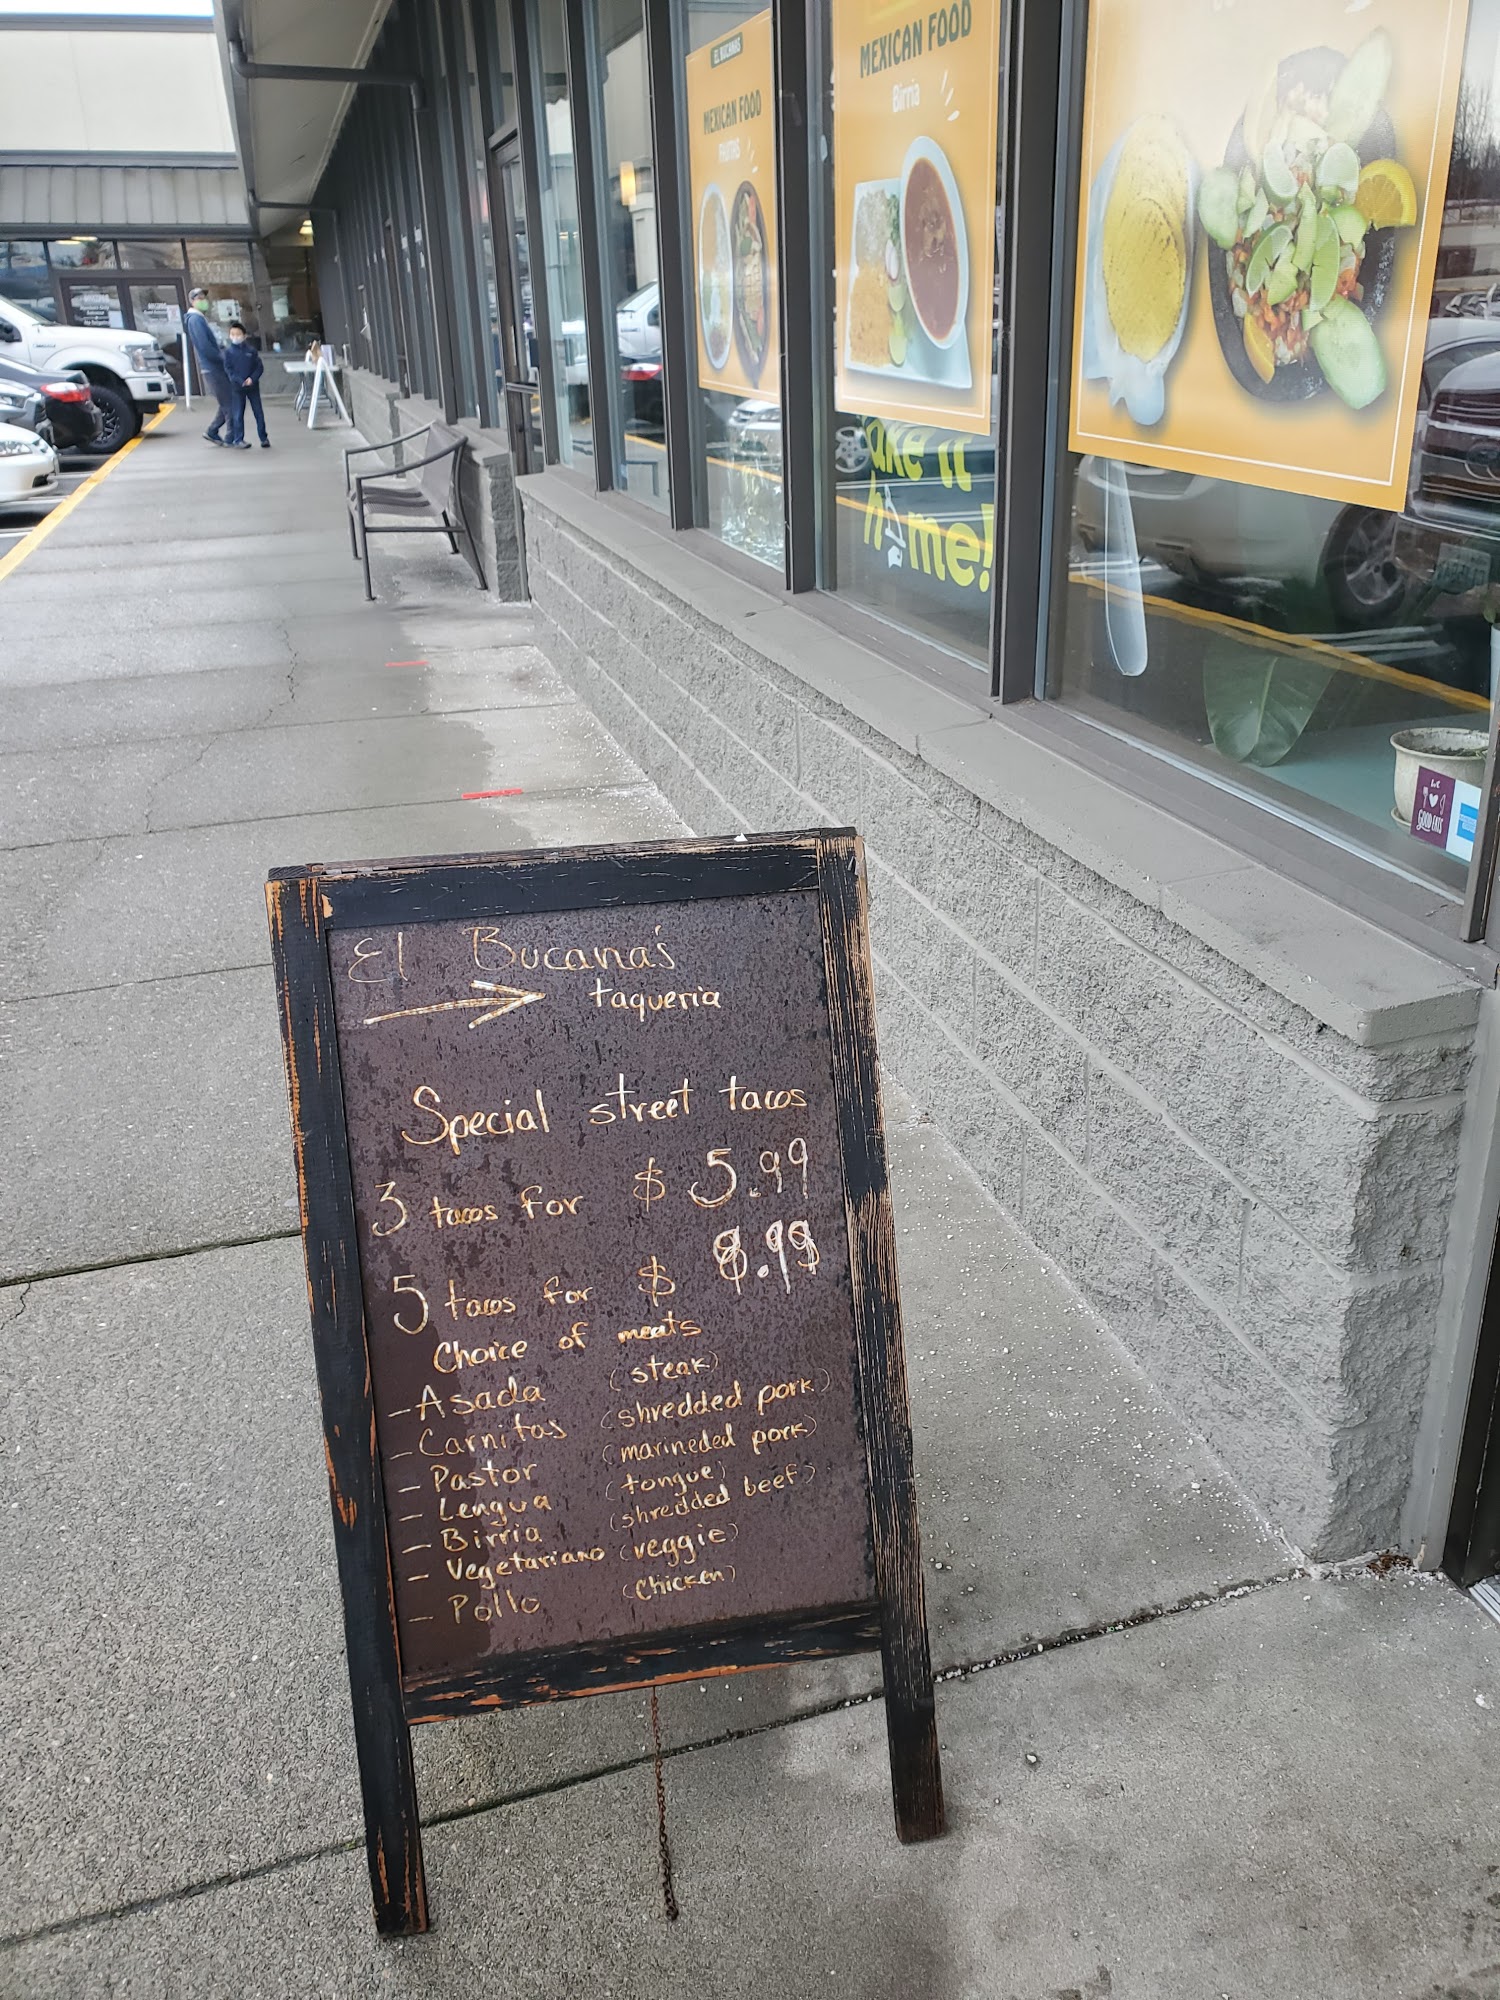 El Bucana's
taqueria
Special street tacos
3 tacos for $ 5.99
5 tacos for $ 8.99
Choice of meats
- Asada (steak)
- Carnitas (shredded pork)
- Pastor (marineded pork)
- Lengua (tongue)
- Birria (shredded beef)
- Vegetariano (veggie)
- Pollo (chicken)
EL BUCANAS
MEXICAN FOOD
FAJITAS
MEXICAN FOOD
Birria
ake it
home!
GOOD EATS